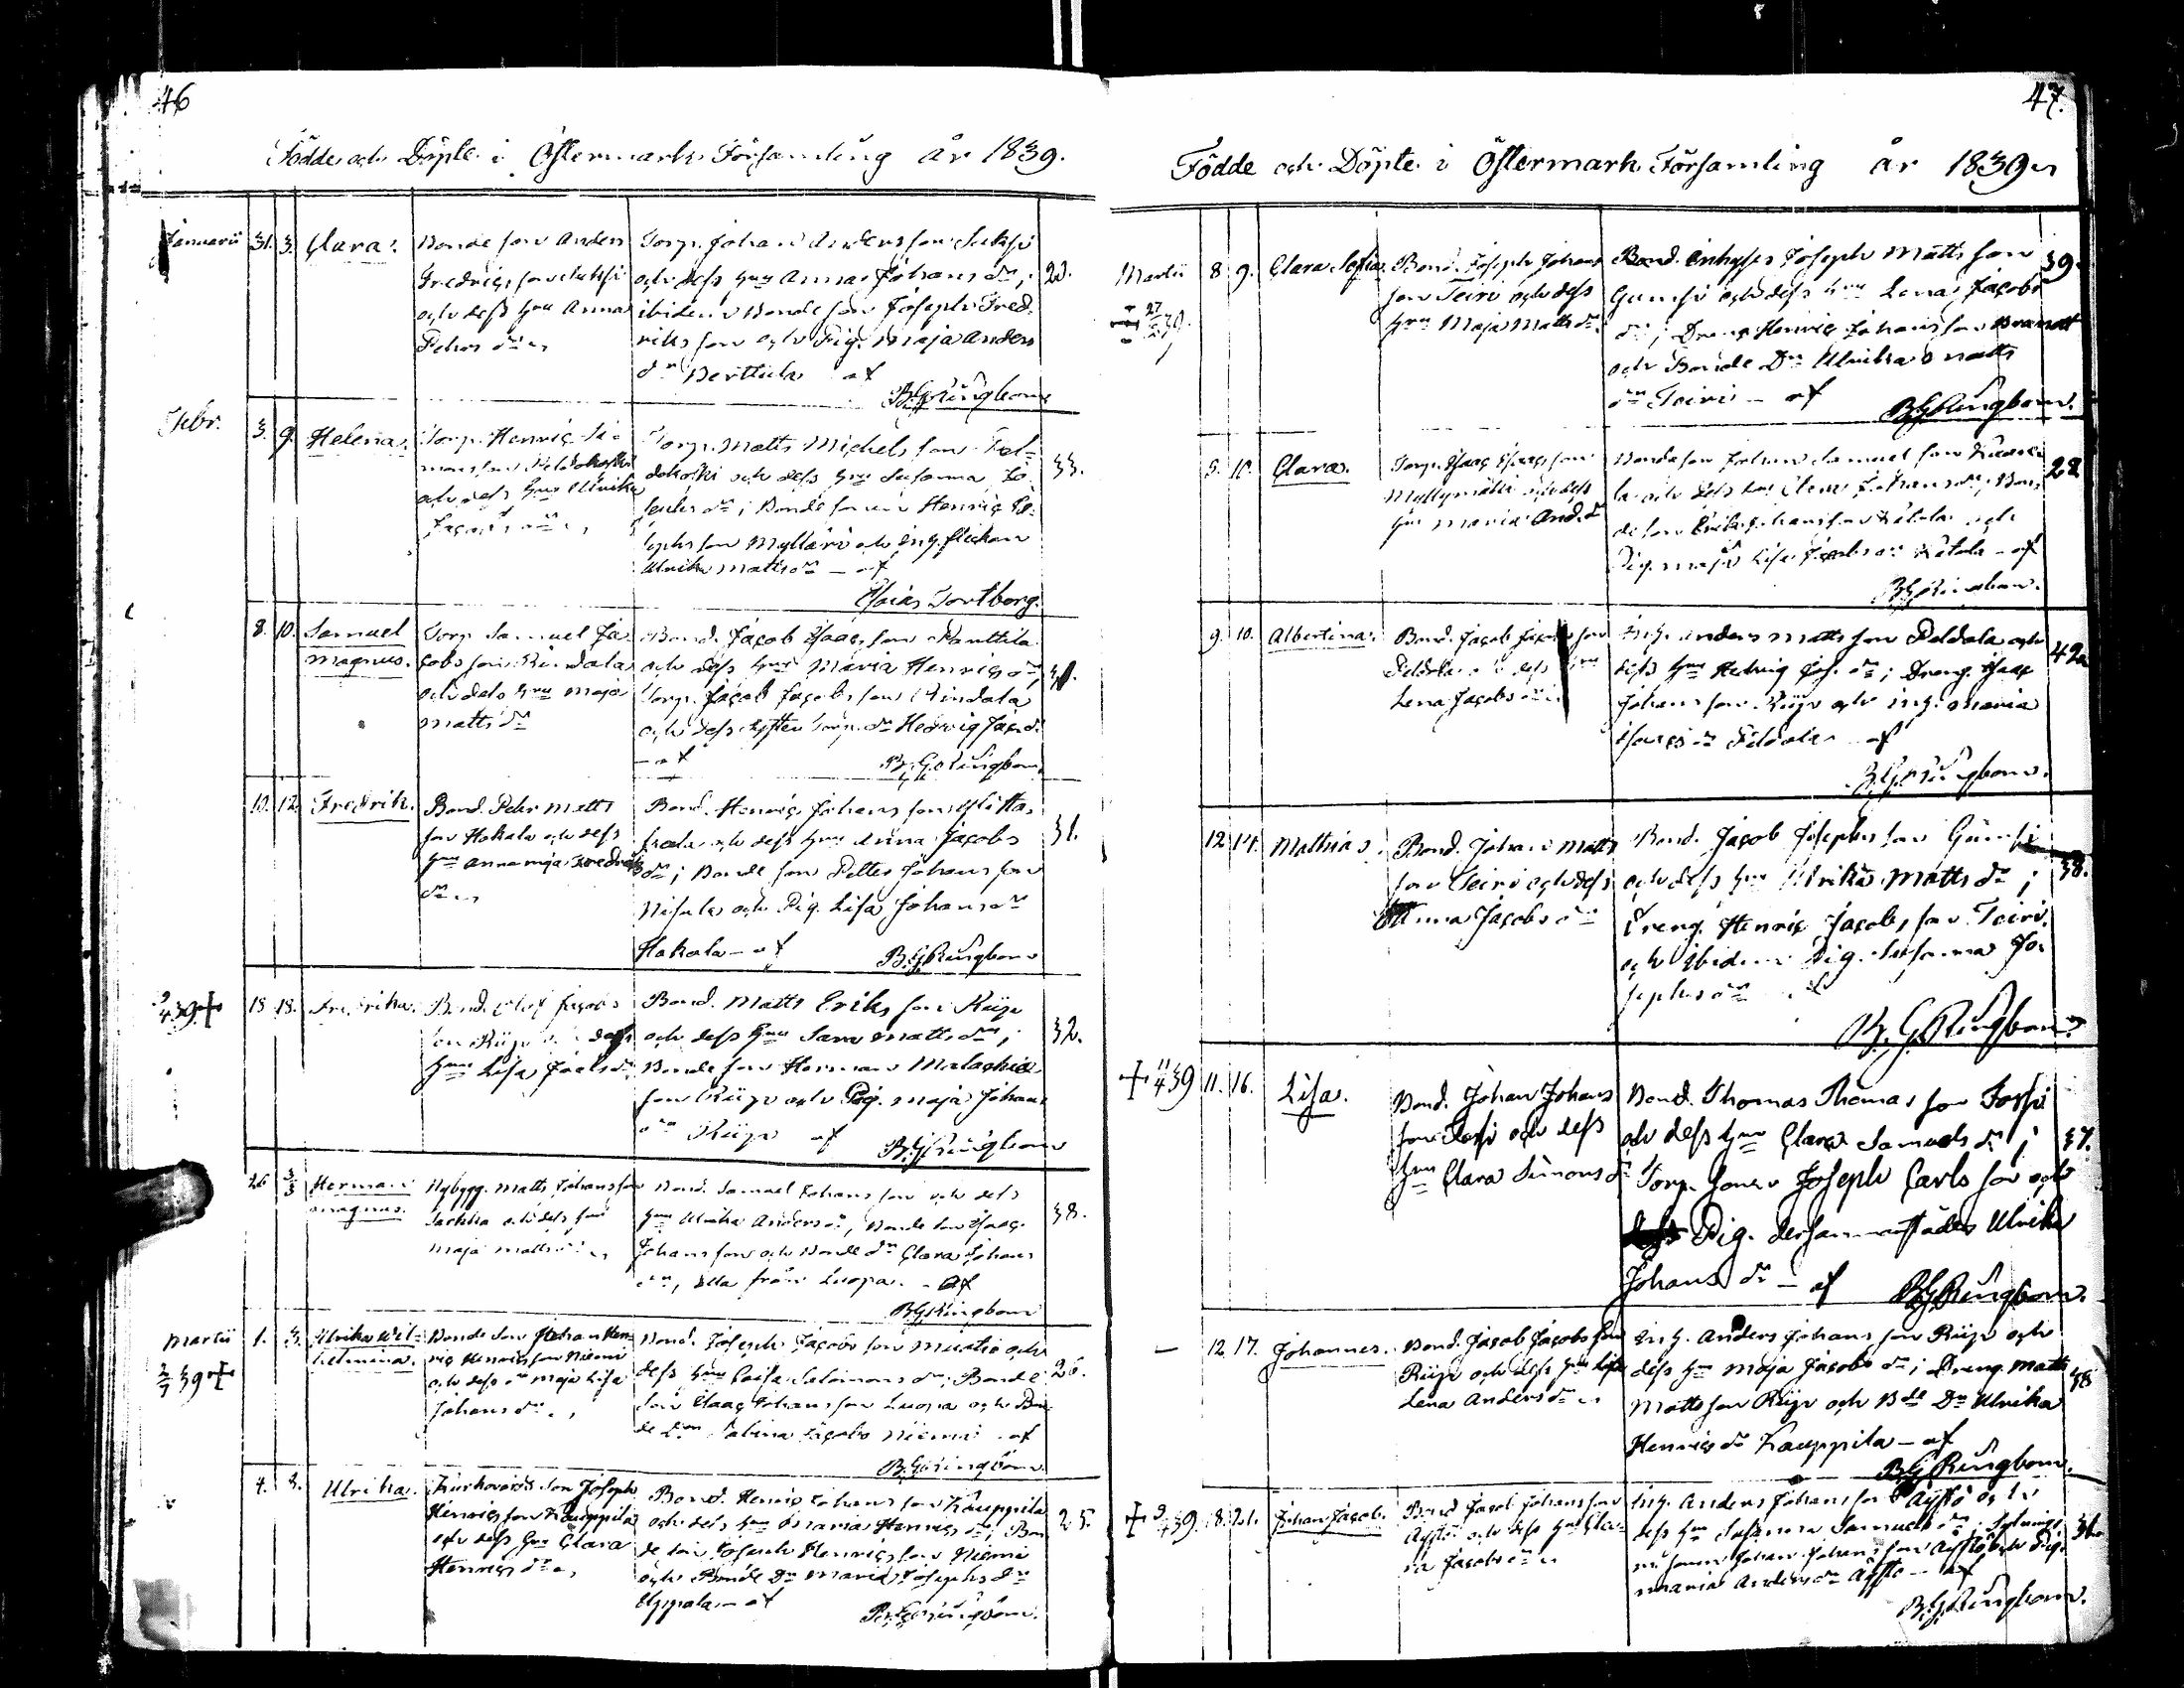 46
Födde och Döpte i Östermark Församling år 1839.
Januarii 31. 3. Clara. Bondeson Anders
Fredrics son Suksi
och dess hu Anna
dr
Torp. Johan Anders son Suksi
och dess hu Anna Johans dr;
ibidem Bonde son Joseph Fred-
riks son och Pig. Maja Anders
dr Perttula af
B.G. Ringbom
Febr. 3. 9. Helena. Torp. Henric Si-
mons son
och dess hu Ulrika
Jacobs dr
Torp. Matts Michels son
och dess hu Susanna Jo-
sephs dr; Bonde sonen Henric Jo-
sephs son Mylläri och inh. flickan
Ulrika Matts dr af
33.
Esaias Tortberg.
8. 10. Samuel
Magnus.
Torp. Samuel Ja-
cobs son Rindala
och dess hu Maja
Matts dr
Bond. Jacob Isaacs son Panttila
och dess hu Maria Henrics dr
Torp. Jacob Jacobs son Rindala
och dess syster Torp. dr Hedvig Jac. dr
af
B.G. Ringbom
10. 12. Fredrik. Bond. Pehr Matts
son Hakala och dess
hu Anna Maja Fredrics
dr
Bond. Henric Johans son
och dess hu Anna Jacobs
dr; Bonde son Petter Johans son
och Pig. Lisa Johans dr
Hakala af
31.
B.G. Ringbom
4 39 + 15 18. Fredrika. Bond. Olof Jacobs
son Rüje och dess
hu Lisa Joels dr
Bond. Matts Eriks son Rüje
och dess hu Sara Matts dr;
Bonde son Herman Malachias
son Rüje och Pig. Maja Johans
dr Rüje af
32.
B.G. Ringbom
26 3/3 Herman
Magnus.
Nybygg. Matts Johans son
och dess hu
Maja Matts dr
Bond. Samuel Johans son och dess
hu Ulrika Anders dr, Bonde son Isaac
Johans son och Bonde dr Clara Johans
dr, alla från Luopa. af
38.
B.G. Ringbom
Martii 1. 3. Ulrika Wil-
helmina.
Bonde son Johan Hen-
ric Henrics son Niemi
och dess hu Maja Lisa
Johans dr
Bond. Joseph Jacobs son och
dess hu Caisa Salomons dr; Bonde
son Isaac Johans son Luopa och Bon-
de dr Sabina Jacobs Niemi af
26.
B.G. Ringbom
4. 3. Ulrika. son Joseph
Henrics son Kauppila
och dess hu Clara
Henrics dr
Bond. Henric Johans son Kauppila
och dess hu Maria Henrics dr; Bon-
de son Joseph Henrics son Niemi
och Bonde Dr Maria Josephs dr
af
25.
B.G. Ringbom.
47.
Födde och Döpte i Östermark Församling år 1839
Martii 8 9. Clara Sofia. Bond. Joseph Johans
son Teiri och dess
hu Maja Matts dr
Bond. Inhyses Joseph Matts son
Gumsi och dess hu Lena Jacobs
dr; Dreng Henric Johans son
och Bonde Dr Ulrika Matts
dr Teiri af
39.
B.G. Ringbom.
10. Clara. Torp. Isaac Isaacs son
Myllymäki och dess
hu Maria And. dr
Bonde son Johan Samuel son
och dess hu Clara Johans dr; Bon-
de son Erik Johans son och
Pig. Maja Lisa Jacobs dr af
28
B.G. Ringbom.
9. 10. Albertina. Bond. Jacob Jacobs son
Peldola och dess hu
Lena Jacobs dr
Inh. Anders Matts son Peldola och
dess hu Hedvig Jos. dr; Dreng. Isaac
Johans son Rüje och inh. Maria
Isaacs dr Peldola af
42
B.G. Ringbom.
12 14. Mathias. Bond. Johan Matts
son Teiri och dess
Anna Jacobs dr
Bond. Jacob Josephs son Gumsi
och dess hu Ulrika Matts dr;
Dreng. Henric Jacobs son Teiri
och Ibidem Pig. Susanna Jo-
sephs dr af
38.
B.G. Ringbom
+ 11/4 39 11. 16. Lisa. Bond. Johan Johans
son Forsi och dess
hu Clara Simons dr
Bond. Thomas Thomas son Forsi
och dess hu Clara Samuels dr;
Torp. sonen Joseph Carls son och
Pig. dersammastädes Ulrika
Johans dr af
37.
B.G. Ringbom.
12. 17. Johannes. Bond. Jacob Jacobs son
Rüje och dess hu Lisa
Lena Anders dr
Inh. Anders Johans son Rüje och
dess hu Maja Jacobs dr; Dreng Matts
Matts son Rüje och Bde Dr Ulrika
Henrics dr Kauppila af
38
B.G. Ringbom.
+ 39. 18. 21. Johan Jacob. Bond. Jacob Johans son
Äystö och dess hu Cla-
ra Jacobs dr
Inh. Anders Johans son Äystö och
dess hu Susanna Samuels dr;
sonen Johan Johans son Äystö och Pig.
Maria Anders dr Äystö af
36
B.G. Ringbom.